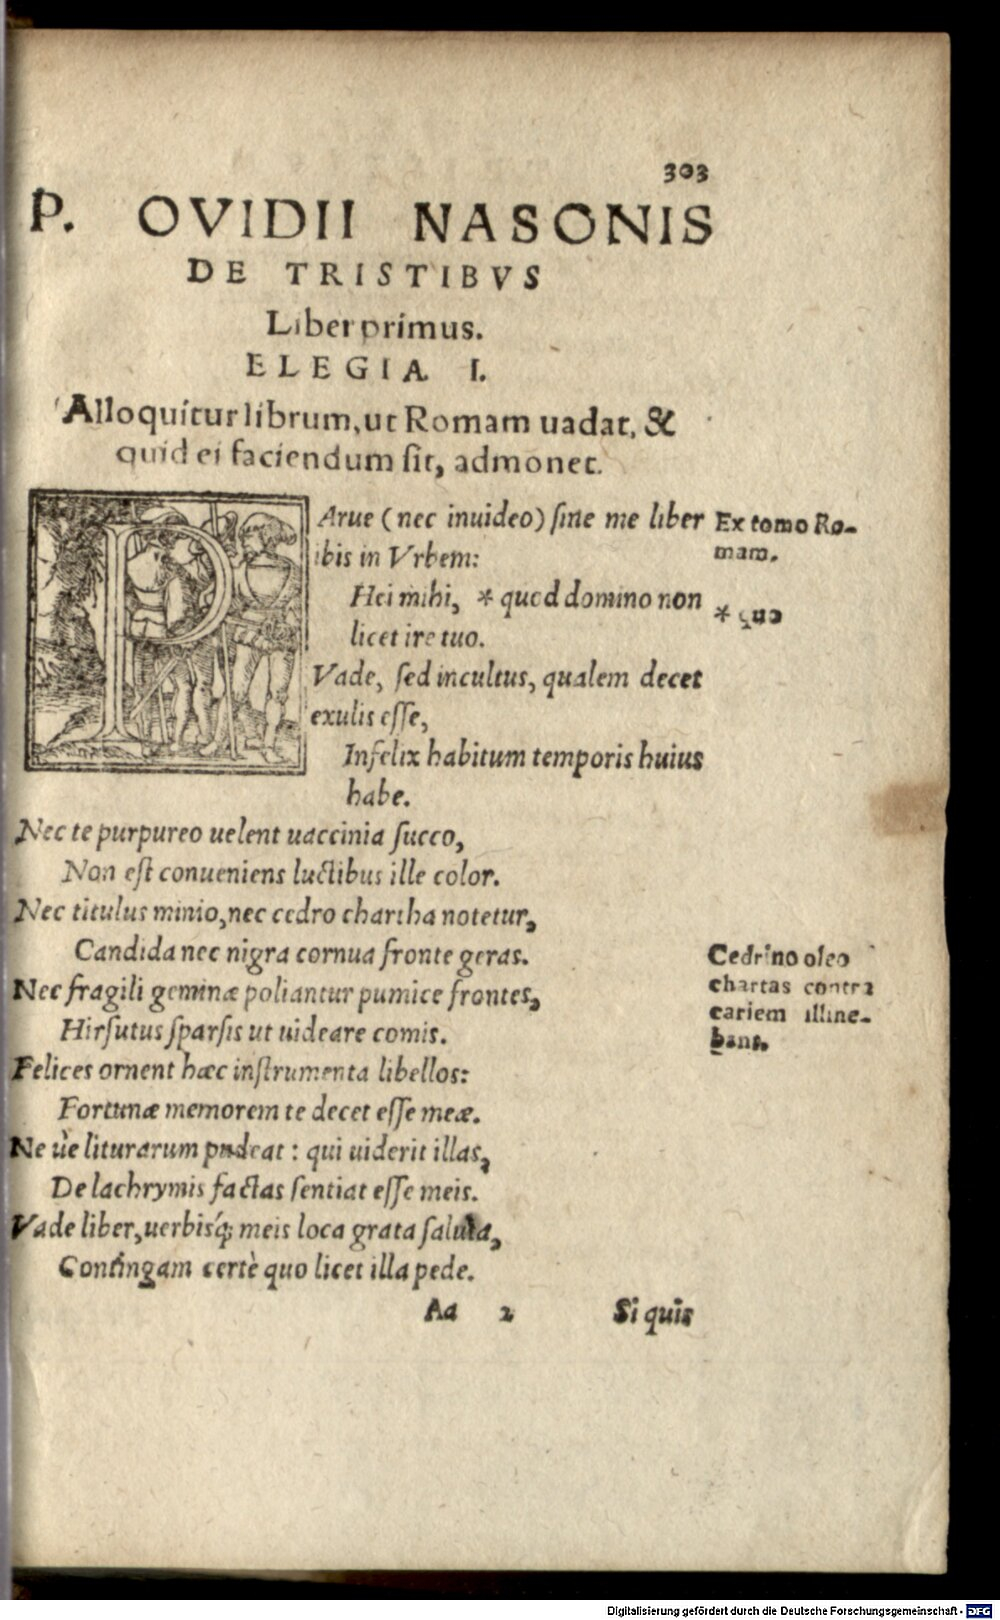 303
P. OVIDII NASONIS
DE TRISTIBVS
Liber primus.
ELEGIA I.
Alloquitur librum, ut Romam uadat, &
quid ei faciendum sit, admonet.
PArue (nec inuideo) sine me liber
ibis in Vrbem:
Hei mihi, * quod domino non
licet ire tuo.
Vade, sed incultus, qualem decet
exulis esse,
Infelix habitum temporis huius
habe.
Ex tomo Ro-
mam.
* quo
Nec te purpureo uelent uaccinia succo,
Non est conueniens luctibus ille color.
Nec titulus minio, nec cedro chartha notetur,
Candida nec nigra cornua fronte geras.
Nec fragili geminæ poliantur pumice frontes,
Hirsutus sparsis ut uideare comis.
Cedrino oleo
chartas contra
cariem illine-
bant.
Felices ornent hæc instrumenta libellos:
Fortunæ memorem te decet esse meæ.
Ne ùe liturarum pudeat: qui uiderit illas,
De lachrymis factas sentiat esse meis.
Vade liber, uerbisq́; meis loca grata saluta,
Contingam certè quo licet illa pede.
Aa 2
Si quis
Digitalisierung gefördert durch die Deutsche Forschungsgemeinschaft - DFG